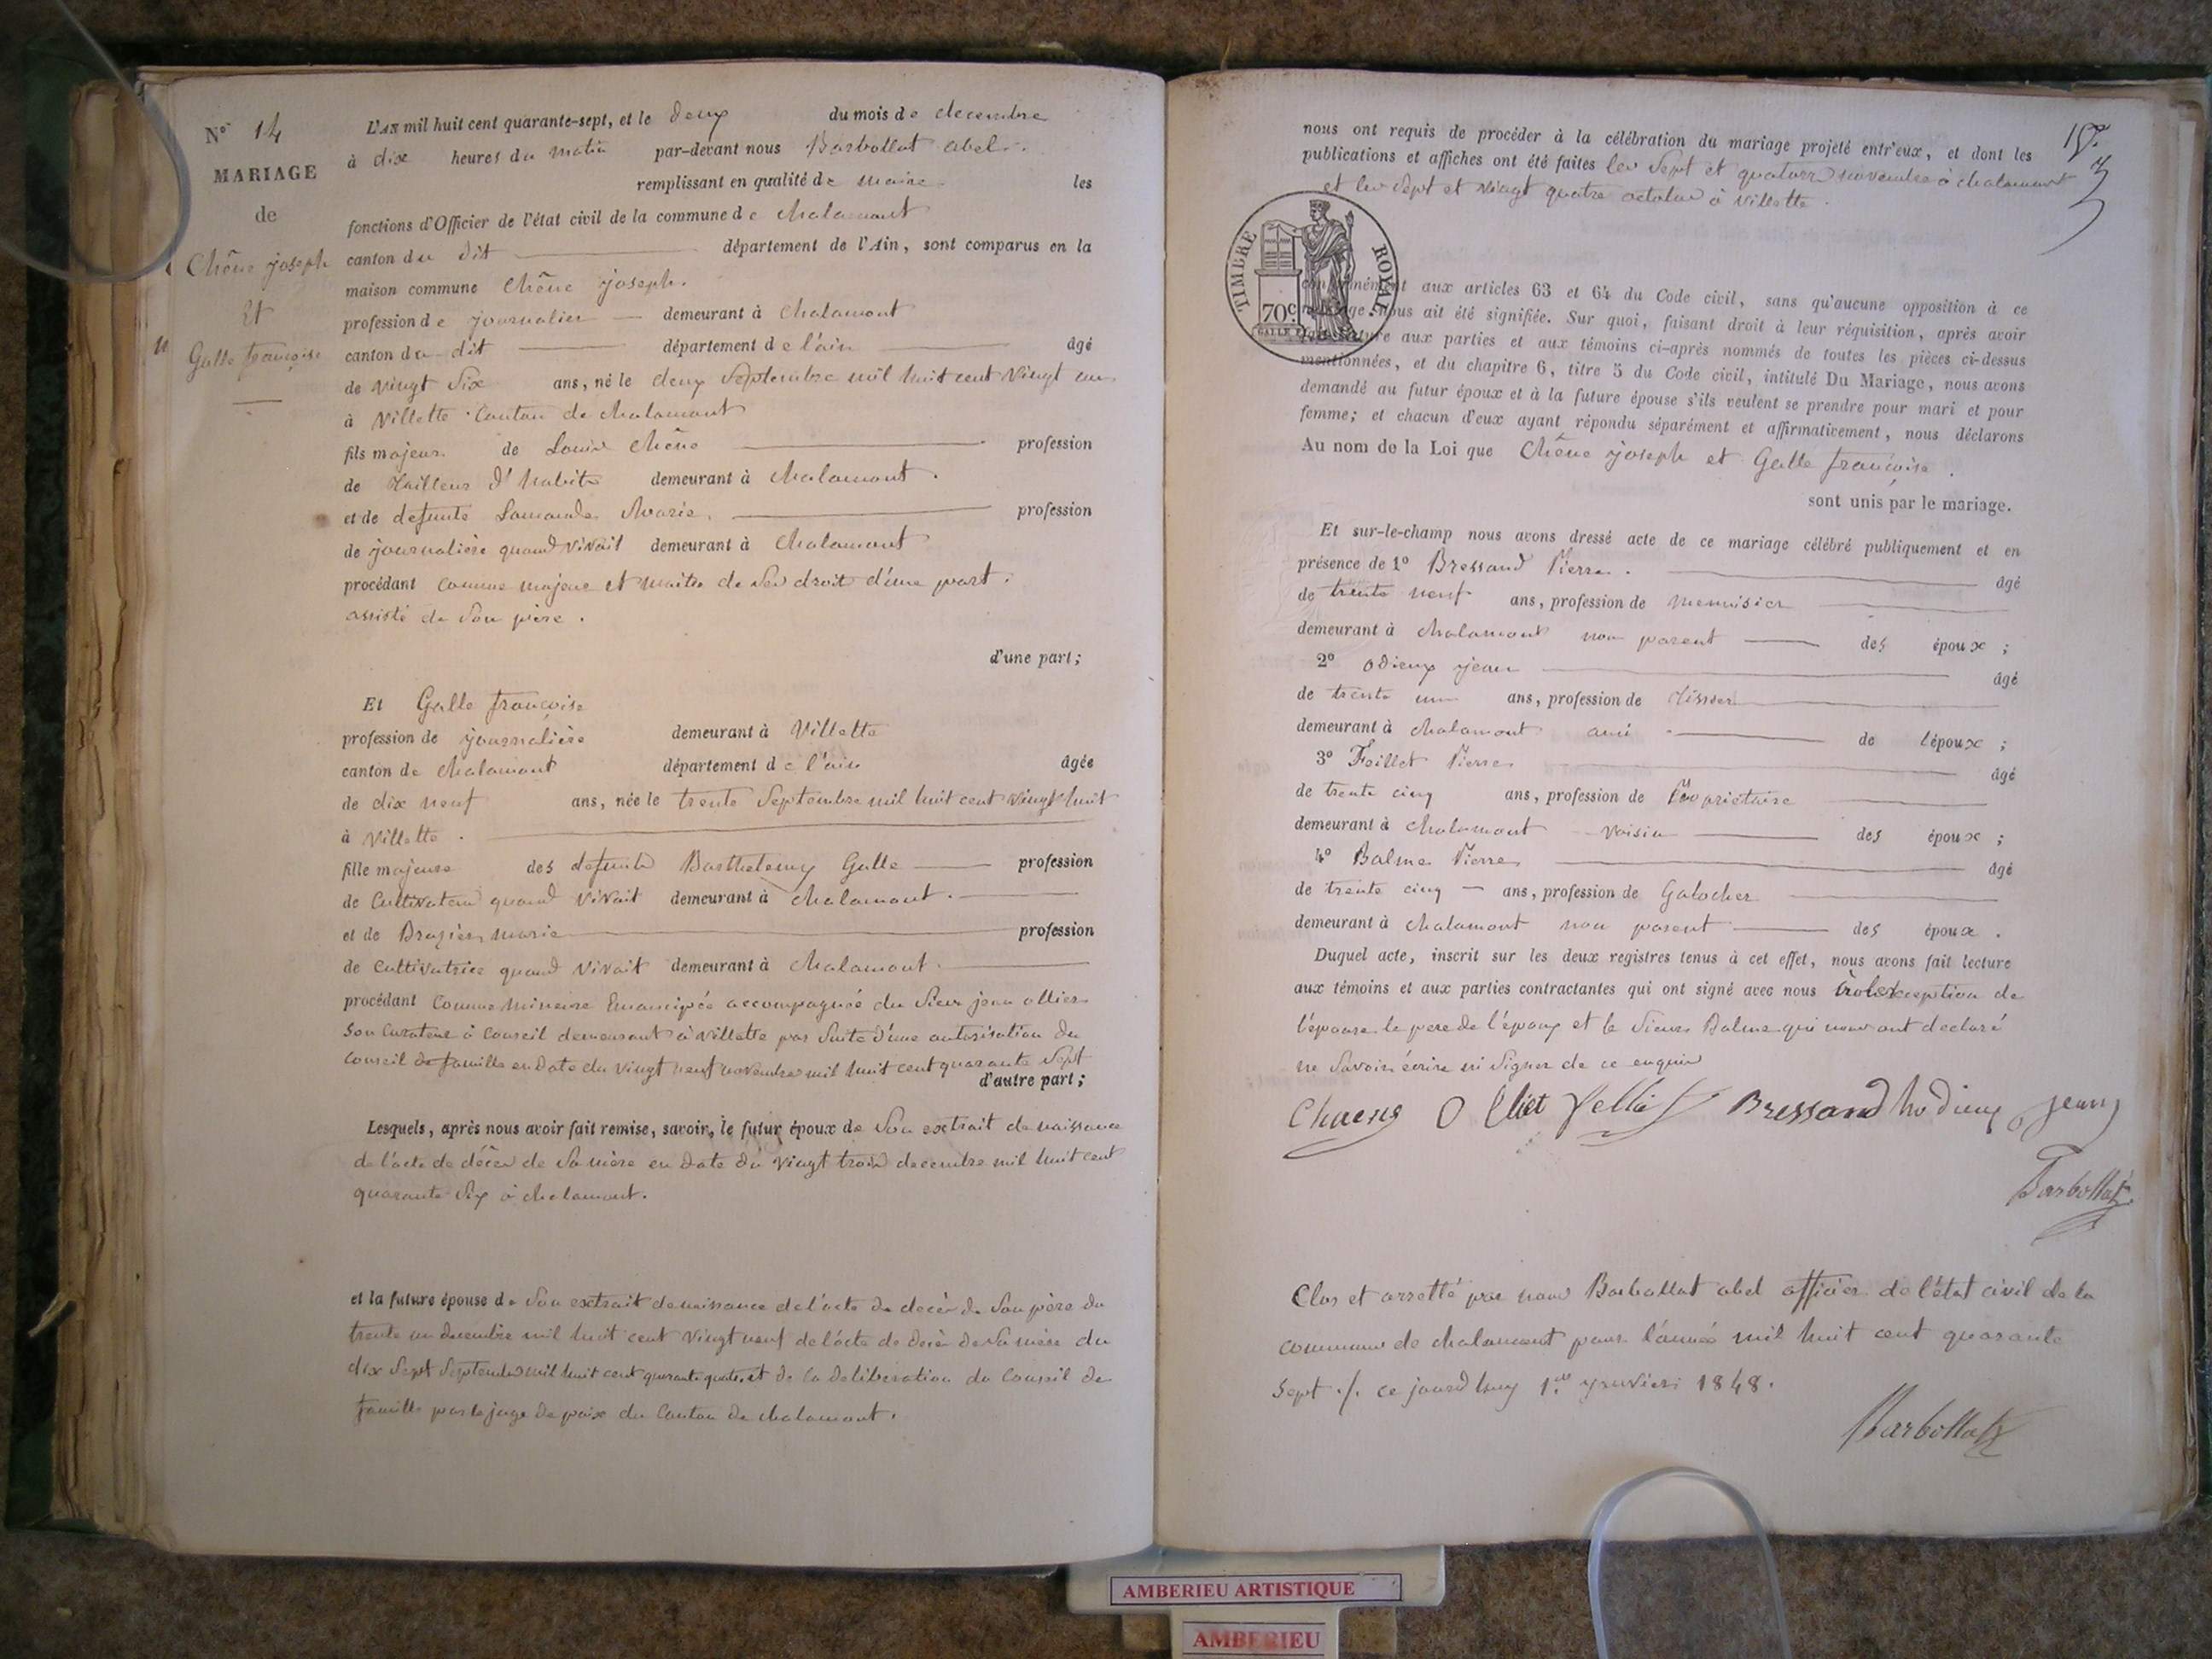 N° 14
MARIAGE
de
Chêne joseph
Et
Galle françoise
L'AN mil huit cent quarante-sept, et le deux du mois de decembre
à dix heures du matin par-devant nous Barbollat abel
remplissant en qualité de maire les
fonctions d'Officier de l'état civil de la commune de chalamont
canton du dit département de l'Ain, sont comparus en la
maison commune Chêne joseph.
profession de journalier demeurant à Chalamont
canton du dit département de l'ain âgé
de vingt Six ans, né le deux Septembre mil huit cent vingt un
à Villette Canton de chalamont
fils majeur de Louis Chêne profession
de tailleur d'habits demeurant à chalamont.
et de defunte Marie profession
de journalière quand vivait demeurant à Chalamont
procédant comme majeur et maitre de ses droits d'une part.
assisté de Son père.
d'une part;
Et Galle françoise
profession de journalière demeurant à Villette
canton de chalamont département de l'ain âgée
de dix neuf ans, née le trente Septembre mil huit cent vingt huit
à Villette.
fille majeure des defunts Barthelemy Galle profession
de Cultivateur quand vivait demeurant à chalamont.
et de Brazier marie profession
de cultivatrice quand vivait demeurant à chalamont.
procédant Comme mineure Emancipée accompagnée du Sieur jean ollier
Son Curateur à Conseil demeurant à Villette par Suite d'une autorisation du
Conseil de famille en date du vingt neuf novembre mil huit cent quarante Sept
d'autre part;
Lesquels, après nous avoir fait remise, savoir, le futur époux de Son extrait de naissance
de l'acte de décès de Sa mère en date du vingt trois decembre mil huit cent
quarante Six à chalamont.
et la future épouse de Son extrait de naissance de l'acte de decès de Son père du
trente un decembre mil huit cent vingt neuf de l'acte de decès de Sa mère du
dix Sept Septembre mil huit cent quarante quatre et de la deliberation du Conseil de
famille par le juge de paix du Canton de chalamont.
nous ont requis de procéder à la célébration du mariage projeté entr'eux, et dont les
publications et affiches ont été faites les Sept et quatorze novembre à chalamont
et les Sept et vingt quatre octobre à Villette.
TIMBRE ROYAL
70c
conformément aux articles 63 et 64 du Code civil, sans qu'aucune opposition à ce
mariage nous ait été signifiée. Sur quoi, faisant droit à leur réquisition, après avoir
fait lecture aux parties et aux témoins ci-après nommés de toutes les pièces ci-dessus
mentionnées, et du chapitre 6, titre 5 du Code civil, intitulé Du Mariage, nous avons
demandé au futur époux et à la future épouse s'ils veulent se prendre pour mari et pour
femme; et chacun d'eux ayant répondu séparément et affirmativement, nous déclarons
Au nom de la Loi que Chêne joseph et Galle françoise.
sont unis par le mariage.
Et sur-le-champ nous avons dressé acte de ce mariage célébré publiquement et en
présence de 1° Bressand Pierre. âgé
de trente neuf ans, profession de menuisier
demeurant à chalamont non parent des époux;
2° odieux jean âgé
de trente un ans, profession de tissier
demeurant à chalamont ami de l'époux;
3° Feillet Pierre âgé
de trente cinq ans, profession de Propriétaire
demeurant à chalamont voisin des époux;
4° Balme Pierre âgé
de trente cinq ans, profession de Galocher
demeurant à chalamont non parent des époux.
Duquel acte, inscrit sur les deux registres tenus à cet effet, nous avons fait lecture
aux témoins et aux parties contractantes qui ont signé avec nous exception de
l'épouse le père de l'époux et le Sieur Balme qui nous ont declaré
ne Savoir écrire ni Signer de ce enquis
Bressand hodieux jean
Barbollat
Clos et arretté par nous Barbollat abel officier de l'état civil de la
commune de chalamont pour l'année mil huit cent quarante
Sept ./. ce jourd'huy 1er janvier 1848.
Barbollat
AMBERIEU ARTISTIQUE
AMBERIEU